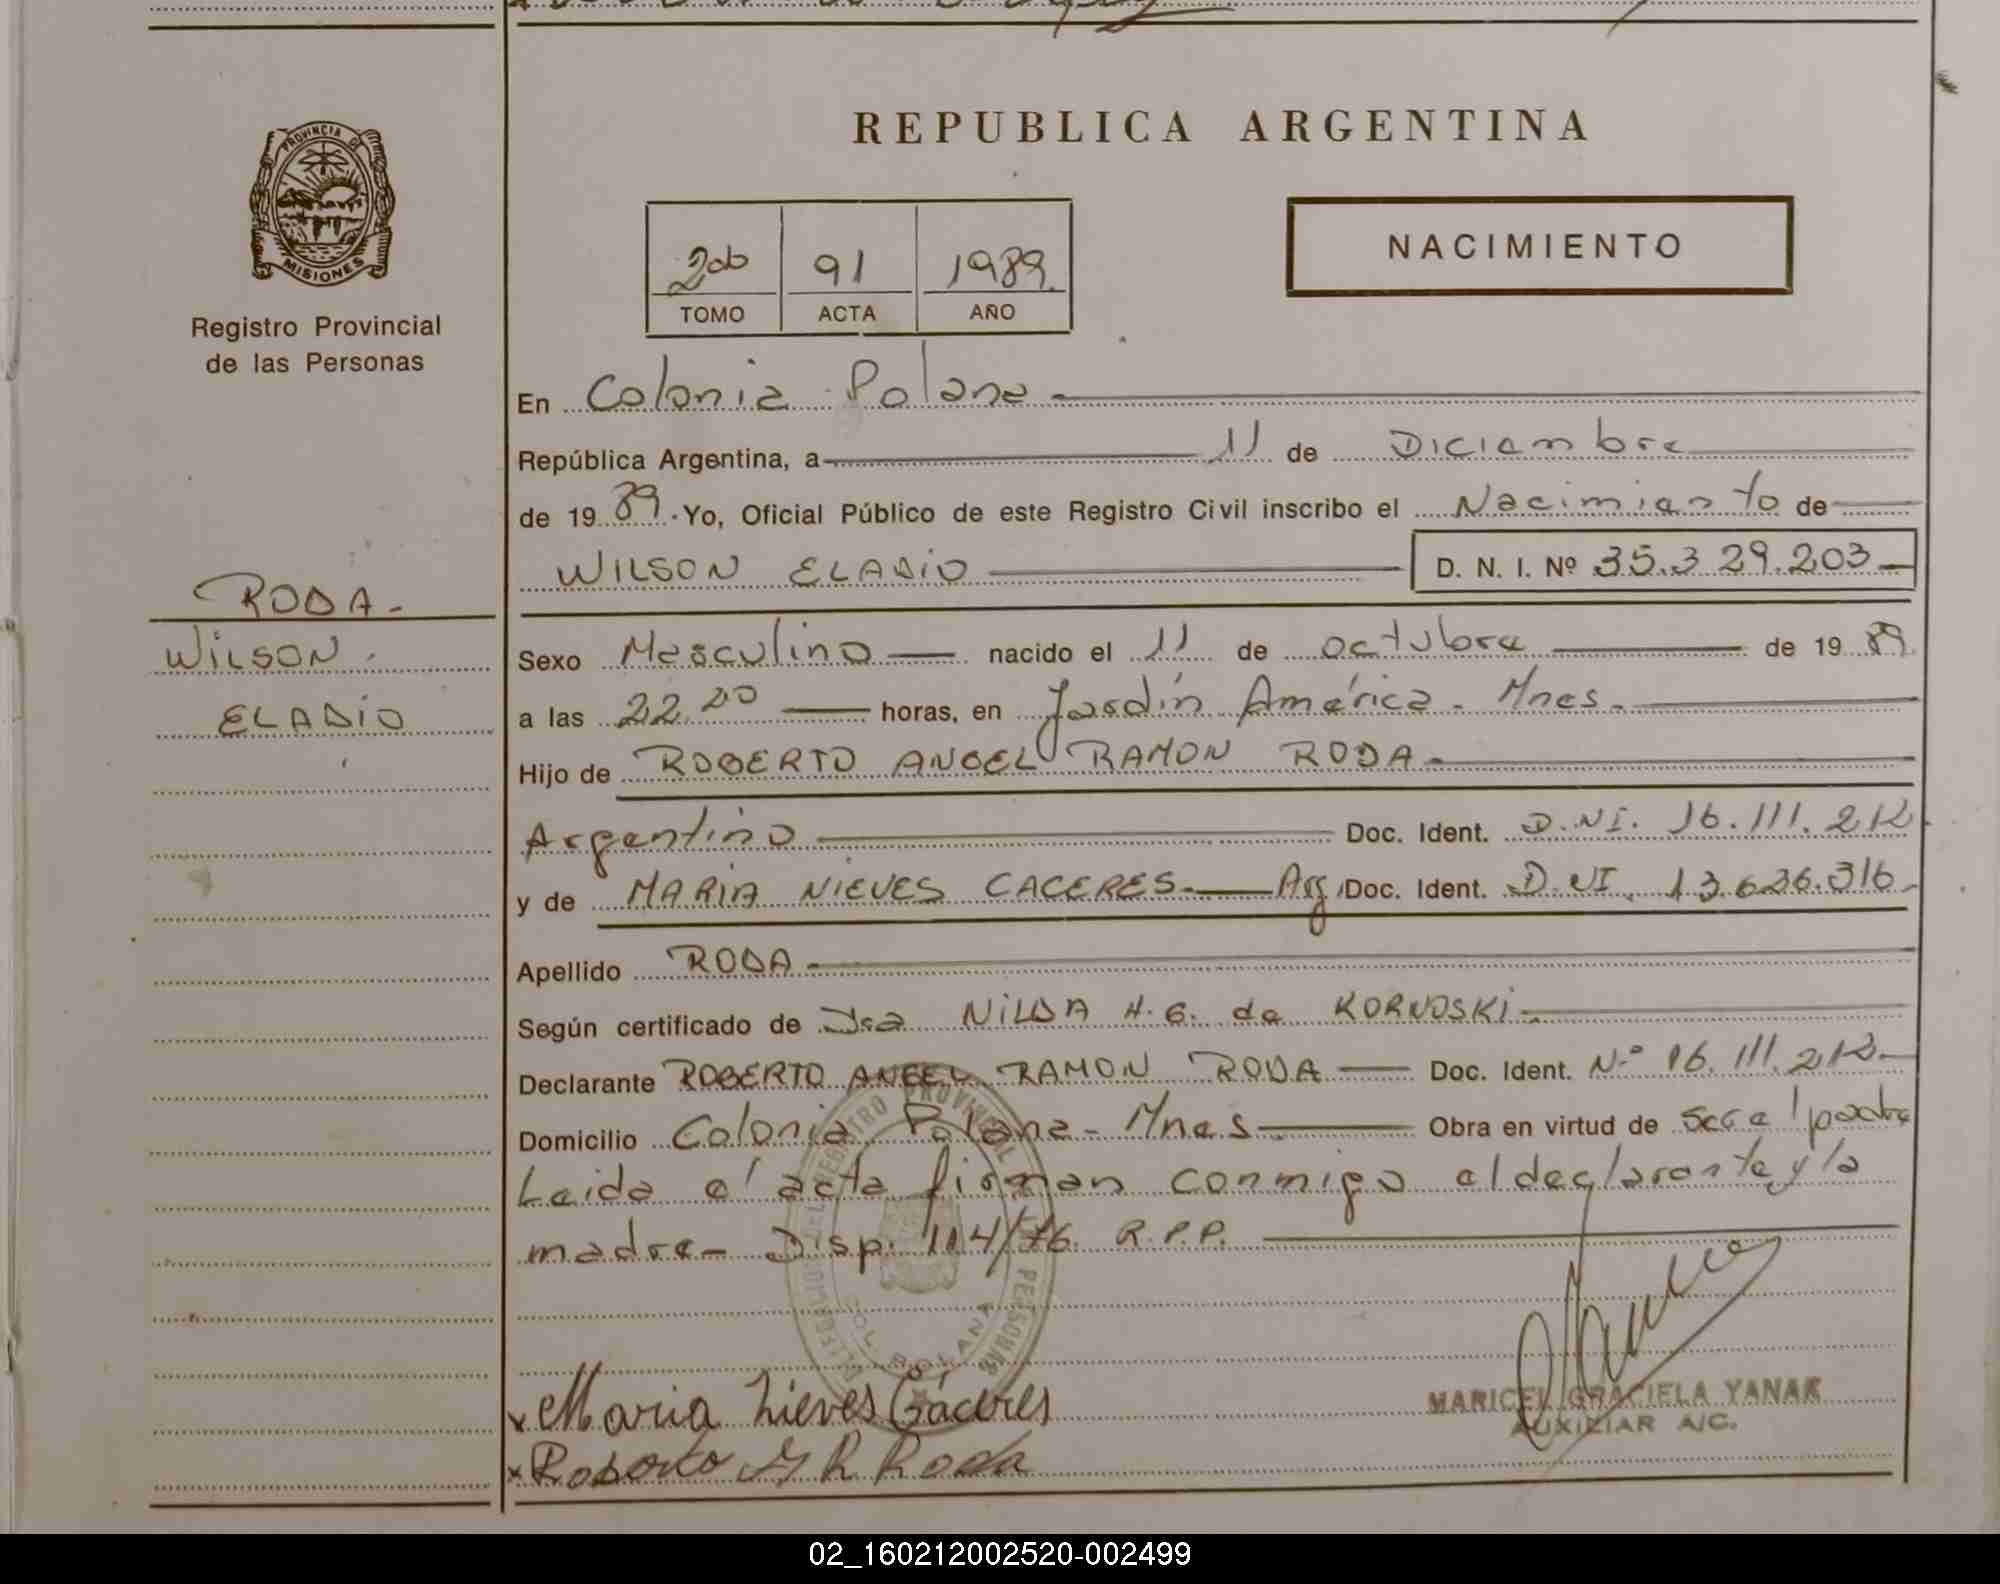 REPUBLICA ARGENTINA
PROVINCIA DE
MISIONES
Registro Provincial
de las Personas
2do 91 1989.
TOMO ACTA AÑO
NACIMIENTO
En Colonia Polana
República Argentina, a 11 de Diciembre
de 1989. Yo, Oficial Público de este Registro Civil inscribo el Nacimiento de
WILSON ELADIO D. N. I. Nº 35.329.203
RODA.
WILSON
ELADIO
Sexo Masculino nacido el 11 de octubre de 1989
a las 22,00 horas, en Jardín América. Mnes.
Hijo de ROBERTO ANGEL RAMON RODA
Argentino Doc. Ident. D.NI. 16.111.212
y de MARIA NIEVES CACERES. Arg. Doc. Ident. D.NI. 13.636.316
Apellido RODA
Según certificado de Dra NILDA H. G. de KORNOSKI
Declarante ROBERTO ANGEL RAMON RODA Doc. Ident. Nº 16.111.212
Domicilio Colonia Polana - Mnes Obra en virtud de ser el padre
Leida el acta firman conmigo el declarante y la
madre - Disp. 114/76. R.P.P.
COL. POLANA
x Maria Nieves Cáceres
MARICEL GRACIELA YANAK
AUXILIAR A/C.
x Roberto A R Roda
02_160212002520-002499